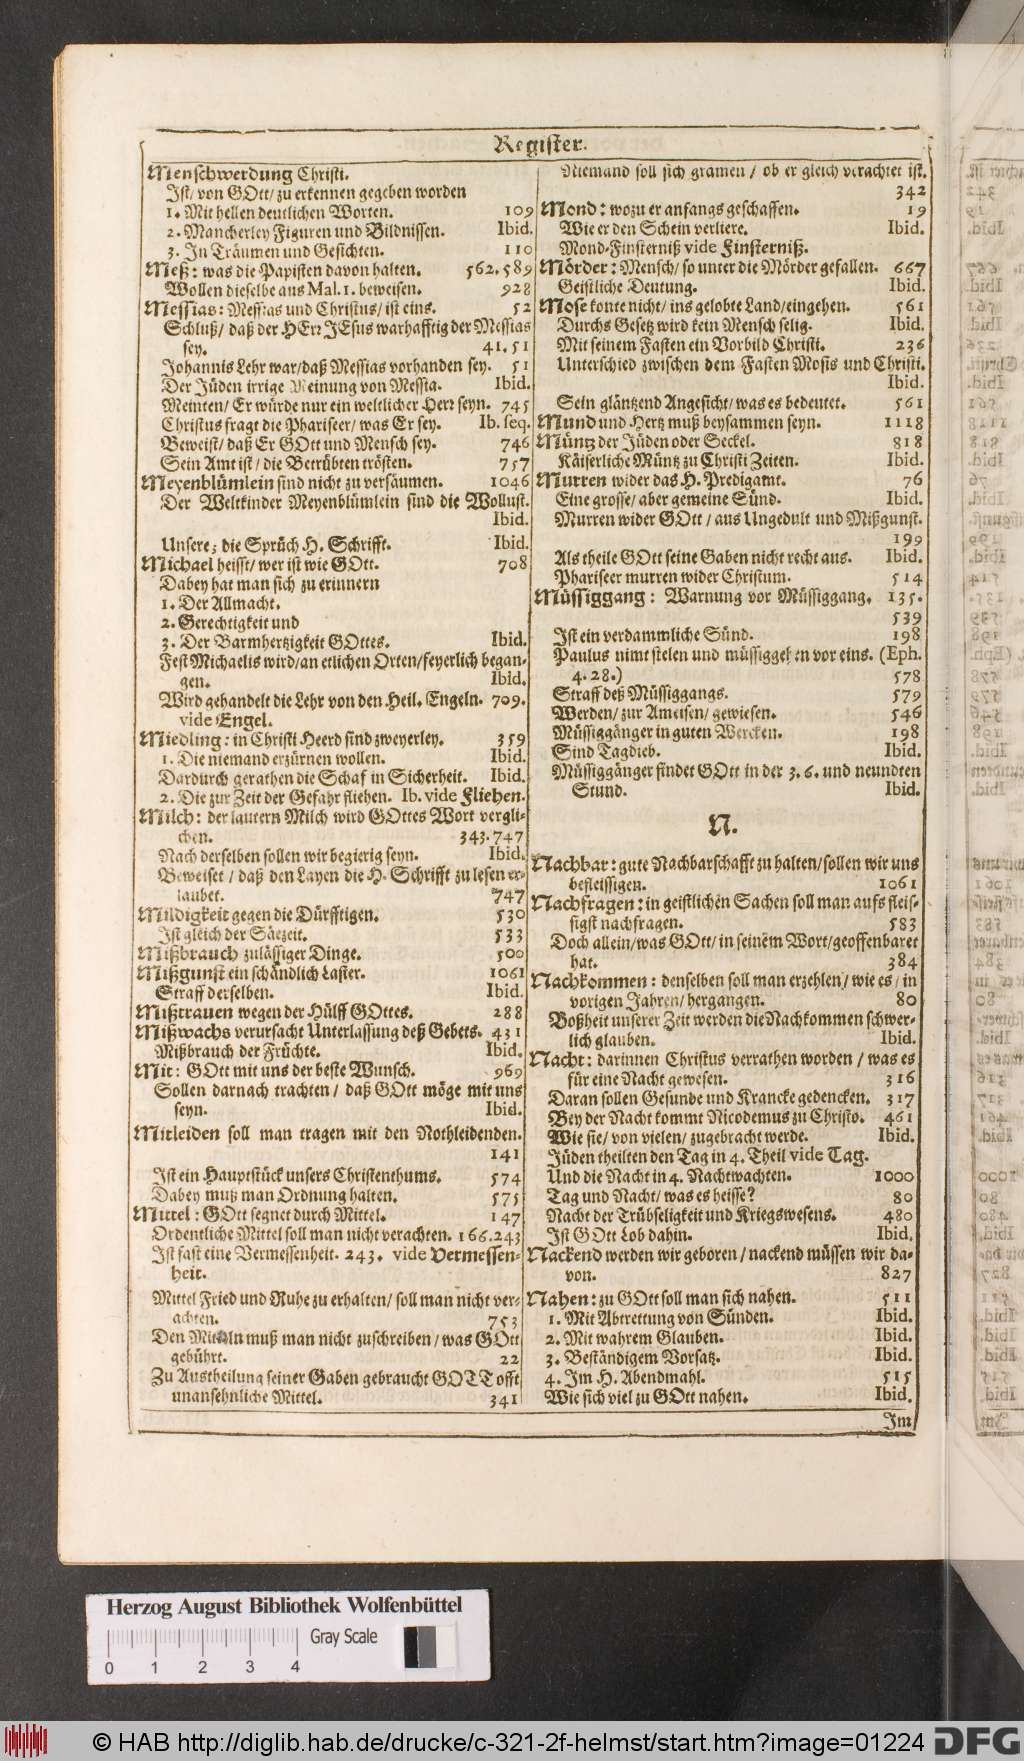 Register.
Menschwerdung Christi.
Ist/ von GOtt/ zu erkennen gegeben worden
1. Mit hellen deutlichen Worten. 109
2. Mancherley Figuren und Bildnissen. Ibid.
3. In Träumen und Gesichten. 110
Meß: was die Papisten davon halten. 562. 589
Wollen dieselbe aus Mal. 1. beweisen. 928
Messias: Messias und Christus/ ist eins. 52
Schluß/ daß der HErr JEsus warhafftig der Messias
sey. 41. 51
Johannis Lehr war/ daß Messias vorhanden sey. 51
Der Jüden irrige Meinung von Messia. Ibid.
Meinten/ Er würde nur ein weltlicher Herr seyn. 745
Christus fragt die Phariseer/ was Er sey. Ib. seq.
Beweist/ daß Er GOtt und Mensch sey. 746
Sein Amt ist/ die Betrübten trösten. 757
Meyenblümlein sind nicht zu versäumen. 1046
Der Weltkinder Meyenblümlein sind die Wollust.
Ibid.
Unsere; die Sprüch H. Schrifft. Ibid.
Michael heisst/ wer ist wie GOtt. 708
Dabey hat man sich zu erinnern
1. Der Allmacht.
2. Gerechtigkeit und
3. Der Barmhertzigkeit GOttes. Ibid.
Fest Michaelis wird/ an etlichen Orten/ feyerlich began-
gen. Ibid.
Wird gehandelt die Lehr von den Heil. Engeln. 709.
vide Engel.
Miedling: in Christi Heerd sind zweyerley. 359
1. Die niemand erzürnen wollen. Ibid.
Dardurch gerathen die Schaf in Sicherheit. Ibid.
2. Die zur Zeit der Gefahr fliehen. Ib. vide Fliehen.
Milch: der lautern Milch wird GOttes Wort vergli-
chen. 343. 747
Nach derselben sollen wir begierig seyn. Ibid.
Beweiset/ daß den Layen die H. Schrifft zu lesen er-
laubet. 747
Mildigkeit gegen die Dürfftigen. 530
Ist gleich der Säezeit. 533
Mißbrauch zulässiger Dinge. 500
Mißgunst ein schändlich Laster. 1061
Straff derselben. Ibid.
Mißtrauen wegen der Hülff GOttes. 288
Mißwachs verursacht Unterlassung deß Gebets. 431
Mißbrauch der Früchte. Ibid.
Mit: GOtt mit uns der beste Wunsch. 969
Sollen darnach trachten/ daß GOtt möge mit uns
seyn. Ibid.
Mitleiden soll man tragen mit den Nothleidenden.
141
Ist ein Hauptstück unsers Christenthums. 574
Dabey muß man Ordnung halten. 575
Mittel: GOtt segnet durch Mittel. 147
Ordentliche Mittel soll man nicht verachten. 166. 243
Ist fast eine Vermessenheit. 243. vide Vermessen-
heit.
Mittel Fried und Ruhe zu erhalten/ soll man nicht ver-
achten. 753
Den Mitteln muß man nicht zuschreiben/ was GOtt
gebührt. 22
Zu Austheilung seiner Gaben gebraucht GOTT offt
unansehnliche Mittel. 341
Niemand soll sich grämen/ ob er gleich verachtet ist.
342
Mond: wozu er anfangs geschaffen. 19
Wie er den Schein verliere. Ibid.
Mond-Finsterniß vide Finsterniß.
Mörder: Mensch/ so unter die Mörder gefallen. 667
Geistliche Deutung. Ibid.
Mose konte nicht/ ins gelobte Land/ eingehen. 561
Durchs Gesetz wird kein Mensch selig. Ibid.
Mit seinem Fasten ein Vorbild Christi. 236
Unterschied zwischen dem Fasten Mosis und Christi.
Ibid.
Sein gläntzend Angesicht/ was es bedeutet. 561
Mund und Hertz muß beysammen seyn. 1118
Müntz der Jüden oder Seckel. 818
Käiserliche Müntz zu Christi Zeiten. Ibid.
Murren wider das H. Predigamt. 76
Eine grosse/ aber gemeine Sünd. Ibid.
Murren wider GOtt/ aus Ungedult und Mißgunst.
199
Als theile GOtt seine Gaben nicht recht aus. Ibid.
Phariseer murren wider Christum. 514
Müssiggang: Warnung vor Müssiggang. 135.
539
Ist ein verdammliche Sünd. 198
Paulus nimt stelen und müssiggehen vor eins. (Eph.
4. 28.) 578
Straff deß Müssiggangs. 579
Werden/ zur Ameisen/ gewiesen. 546
Müssiggänger in guten Wercken. 198
Sind Tagdieb. Ibid.
Müssiggänger findet GOtt in der 3. 6. und neundten
Stund. Ibid.
N.
Nachbar: gute Nachbarschafft zu halten/ sollen wir uns
befleissigen. 1061
Nachfragen: in geistlichen Sachen soll man aufs fleis-
sigst nachfragen. 583
Doch allein/ was GOtt/ in seinem Wort/ geoffenbaret
hat. 384
Nachkommen: denselben soll man erzehlen/ wie es/ in
vorigen Jahren/ hergangen. 80
Boßheit unserer Zeit werden die Nachkommen schwer-
lich glauben. Ibid.
Nacht: darinnen Christus verrathen worden/ was es
für eine Nacht gewesen. 316
Daran sollen Gesunde und Krancke gedencken. 317
Bey der Nacht kommt Nicodemus zu Christo. 461
Wie sie/ von vielen/ zugebracht werde. Ibid.
Jüden theilten den Tag in 4. Theil vide Tag.
Und die Nacht in 4. Nachtwachten. 1000
Tag und Nacht/ was es heisse? 80
Nacht der Trübseligkeit und Kriegswesens. 480
Ist GOtt Lob dahin. Ibid.
Nackend werden wir geboren/ nackend müssen wir da-
von. 827
Nahen: zu GOtt soll man sich nahen. 511
1. Mit Abtrettung von Sünden. Ibid.
2. Mit wahrem Glauben. Ibid.
3. Beständigem Vorsatz. Ibid.
4. Im H. Abendmahl. 515
Wie sich viel zu GOtt nahen. Ibid.
Im
Herzog August Bibliothek Wolfenbüttel
Gray Scale
0 1 2 3 4
© HAB http://diglib.hab.de/drucke/c-321-2f-helmst/start.htm?image=01224
DFG